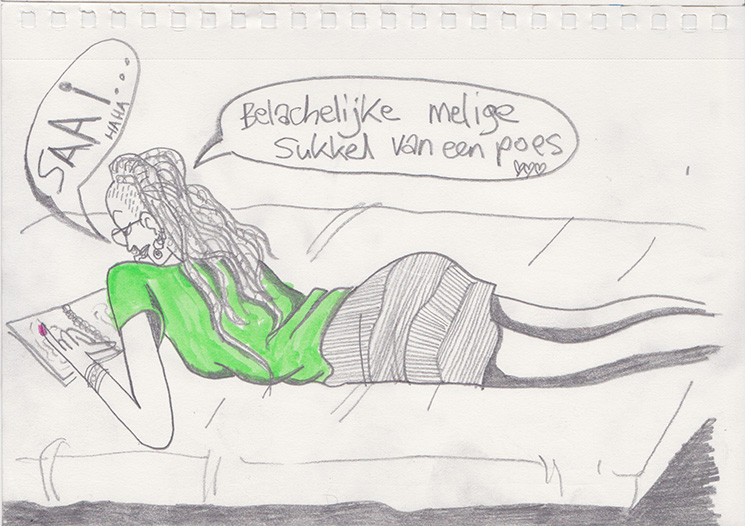 SAAi...
HAHA
Belachelijke melige
sukkel van een poes